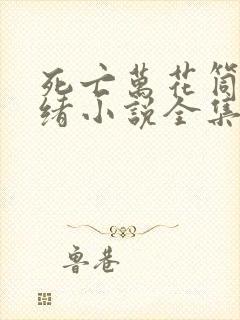 死亡萬花筒
緒小說全集
魯巷